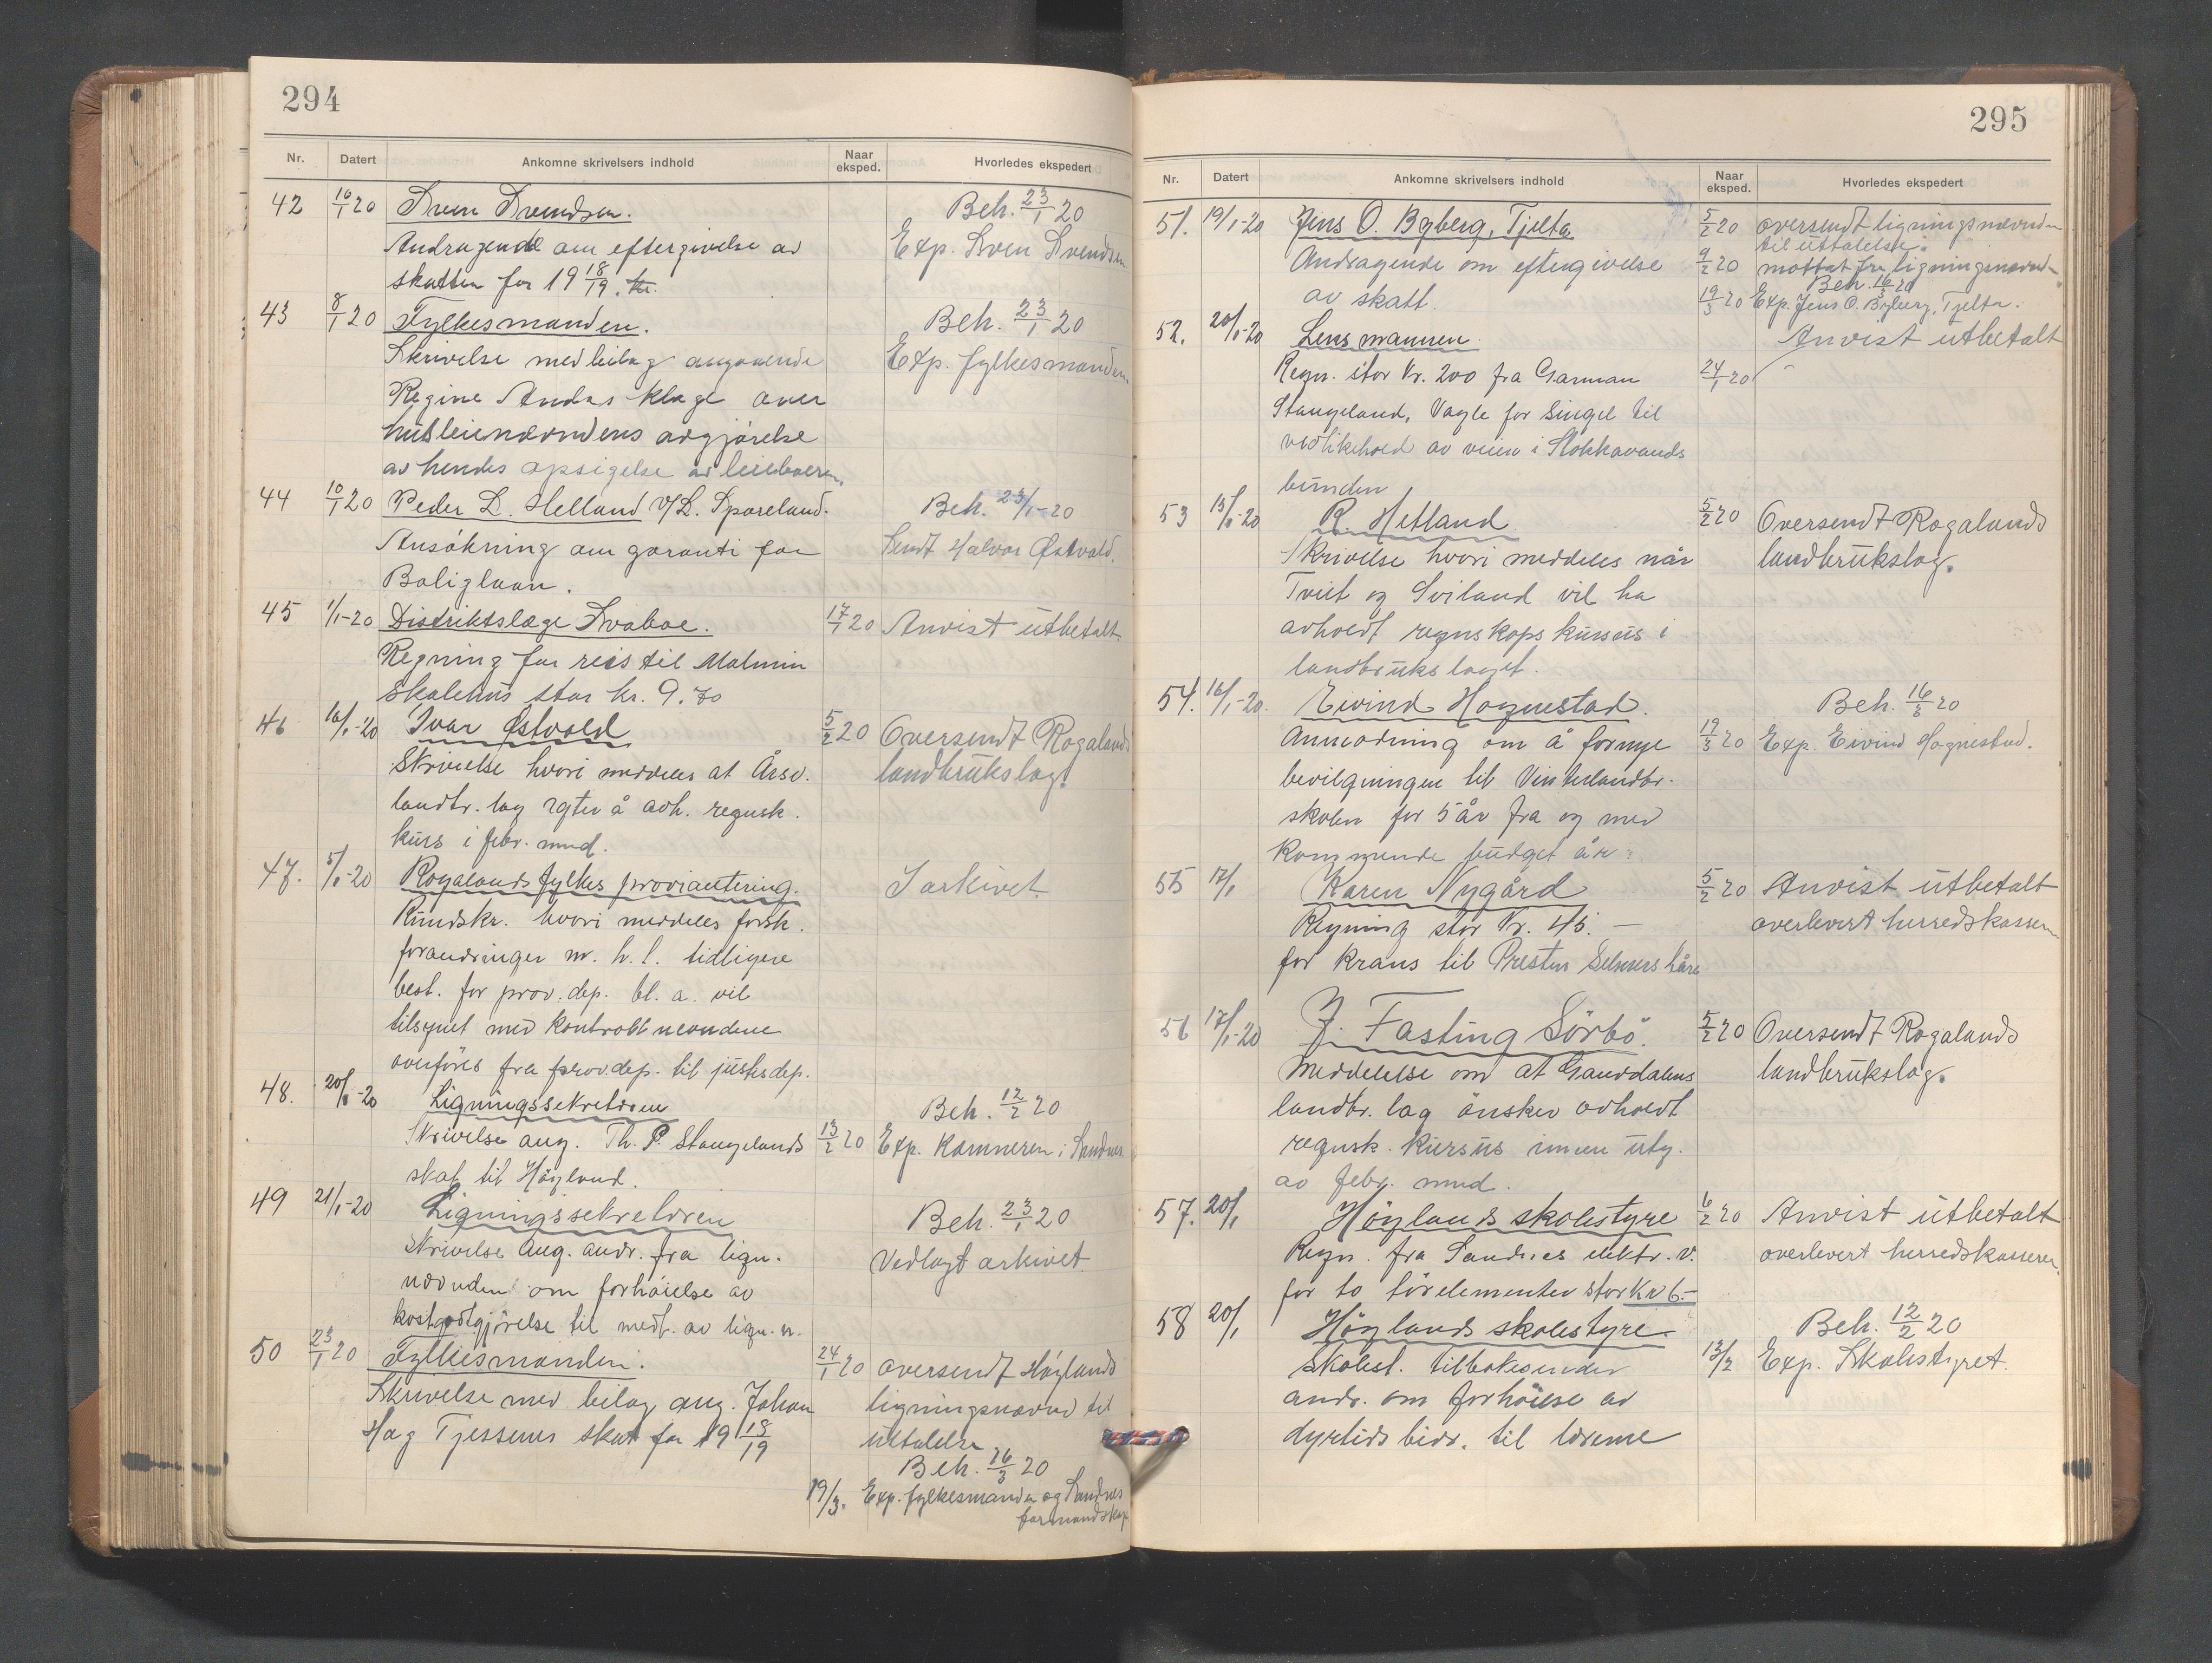 294
Nr. Datert Ankomne skrivelsers indhold Naar eksped. Hvorledes ekspedert
42 16/1 20 Sven Svendsen. Beh. 23/1 20
Andragende om eftergivelse av Exp. Sven Svendsen
skatten for 19 18/19. kr.
43 8/1 20 Fylkesmanden. Beh. 23/1 20
Skrivelse med bilag angaaende Exp. fylkesmanden
Regine Andas klage over
husleienævndens avgjørelse
av hendes opsigelse av leieboeren.
44 10/1 20 Peder L. Helland v/L. Sporeland. Beh. 23/1-20
Ansökning om garanti for Sendt Halvor Østvold.
Boliglaan.
45 1/1-20 Distriktslæge Svaboe. 17/1 20 Anvist utbetalt
Regning for reis til Malmin
skolehus stor kr. 9.70
46 16/1-20 Ivar Østvold 5/2 20 Oversendt Rogalands
Skrivelse hvori meddeles at Årsv. landbrukslag.
landbr. lag agter å avh. regnsk.
kurs i febr. mnd.
47. 5/1-20 Rogalands fylkes proviantering. I arkivet
Rundskr. hvori meddeles forsk.
forandringer m. h. t. tidligere
best. for prov. dep. bl. a. vil
tilsynet med kontrollnevndene
overföres fra prov.dep. til justisdep.
48. 20/1-20 Ligningssekretæren Beh. 12/2 20
Skrivelse ang. Th. P. Stangelands 13/2 20 Exp. Kæmneren i Sandnes
skat til Höyland.
49 21/1-20 Ligningssekretæren Beh. 23/1 20
Skrivelse ang. andr. fra lign. Vedlagt arkivet
nævnden om forhöielse av
kostgodtgjörelse til medl. av lign. n.
50 23/1 20 Fylkesmanden. 24/1 20 oversendt Höylands
Skrivelse med bilag ang. Johan ligningsnævnd til
Hag Tjessems skat for 19 18/19 uttalelse
Beh. 16/3 20
19/3. Exp. fylkesmanden og Sandnes
formandskap
295
Nr. Datert Ankomne skrivelsers indhold Naar eksped. Hvorledes ekspedert
51. 19/1-20 Jens O. Byberg, Tjelta 5/2 20 oversendt ligningsnævnden
til uttalelse.
Andragende om eftergivelse 9/2 20 mottat fra ligningsnævnd.
av skatt. Beh. 16/3 20
19/3 20 Exp. Jens O. Byberg, Tjelta.
52. 20/1-20 Lensmannen Anvist utbetalt
Regn. stor kr. 200 fra Garman 24/1 20
Stangeland, Vagle for singel til
vedlikehold av veien i Stokkavands
bunden
53 15/1-20 R. Hetland 5/2 20 Oversendt Rogalands
Skrivelse hvori meddeles når landbrukslag.
Tveit og Sviland vil ha
avholdt regnskapskursus i
landbrukslaget.
54. 16/1-20. Eivind Hognestad. Beh. 16/3 20
Anmodning om å fornye 19/3 20 Exp. Eivind Hognestad.
bevilgningen til Vinterlandbr.
skolen for 5 år fra og med
kommende budget år.
55 17/1 Karen Nygård 5/2 20 Anvist utbetalt
Regning stor kr. 45.— overlevert herredskasseren
for krans til Presten Selmers båre
56 17/1-20 J. Fasting Sörbö. 5/2 20 Oversendt Rogalands
Meddelelse om at Ganddalens landbrukslag.
landbr. lag önsker avholdt
regnsk. kursus innen utg.
av febr. mnd.
57. 20/1 Höylands skolestyre 6/2 20 Anvist utbetalt
Regn. fra Sandnes elektr. v. overlevert herredskasseren.
for to törelementer stor kr 6.—
58 20/1 Höylands skolestyre Beh. 12/2 20
Skolest. tilbakesender 13/2 Exp. Skolestyret.
andr. om forhöielse av
dyrtidsbidr. til lærerne